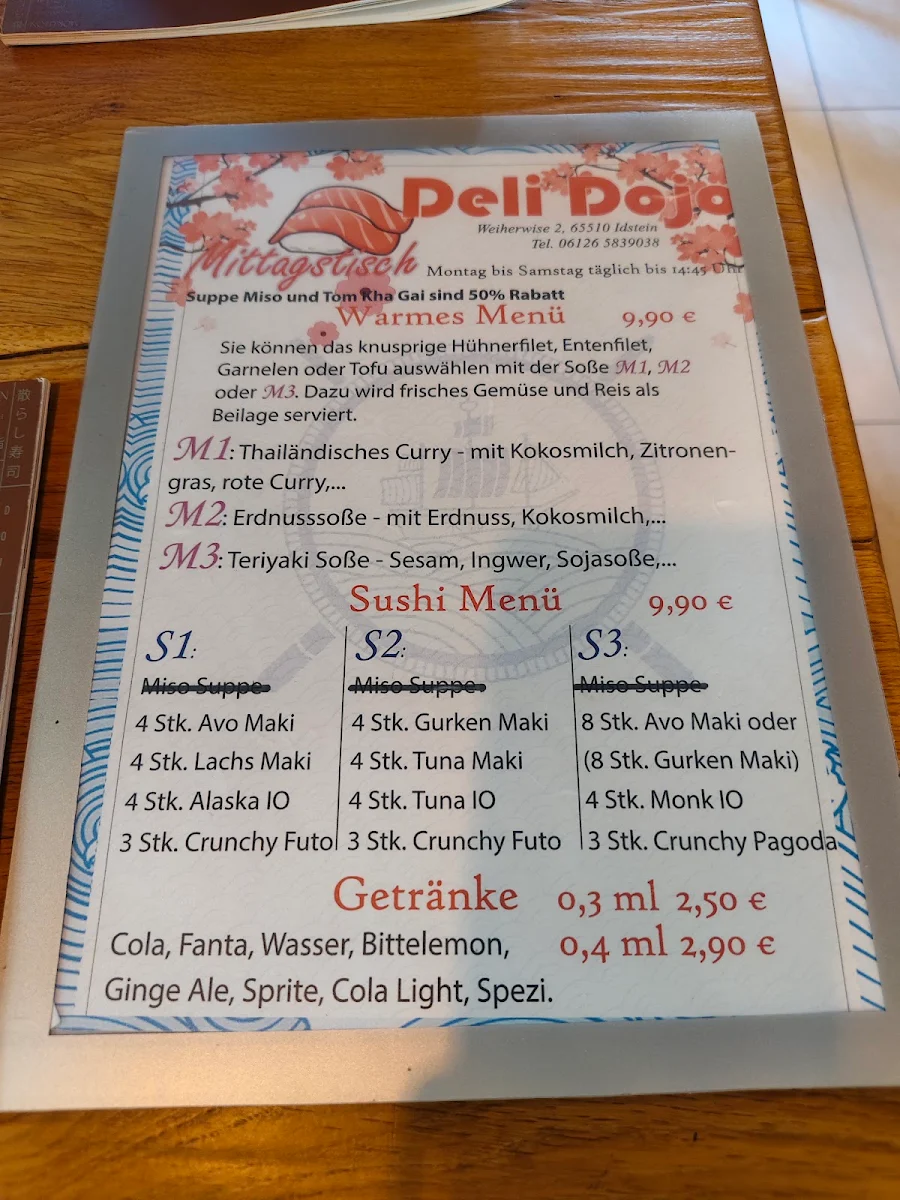 Deli Dojo
Weiherwise 2, 65510 Idstein
Tel. 06126 5839038
Mittagstisch Montag bis Samstag täglich bis 14:45 Uhr
Suppe Miso und Tom Kha Gai sind 50% Rabatt
Warmes Menü 9,90 €
Sie können das knusprige Hühnerfilet, Entenfilet,
Garnelen oder Tofu auswählen mit der Soße M1, M2
oder M3. Dazu wird frisches Gemüse und Reis als
Beilage serviert.
M1: Thailändisches Curry - mit Kokosmilch, Zitronen-
gras, rote Curry,...
M2: Erdnusssoße - mit Erdnuss, Kokosmilch,...
M3: Teriyaki Soße - Sesam, Ingwer, Sojasoße,...
Sushi Menü 9,90 €
S1:
Miso Suppe
4 Stk. Avo Maki
4 Stk. Lachs Maki
4 Stk. Alaska IO
3 Stk. Crunchy Futo
S2:
Miso Suppe
4 Stk. Gurken Maki
4 Stk. Tuna Maki
4 Stk. Tuna IO
3 Stk. Crunchy Futo
S3:
Miso Suppe
8 Stk. Avo Maki oder
(8 Stk. Gurken Maki)
4 Stk. Monk IO
3 Stk. Crunchy Pagoda
Getränke 0,3 ml 2,50 €
Cola, Fanta, Wasser, Bittelemon, 0,4 ml 2,90 €
Ginge Ale, Sprite, Cola Light, Spezi.
散らし寿司